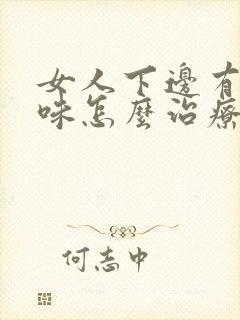 女人下邊有
味怎麼治療
何志中